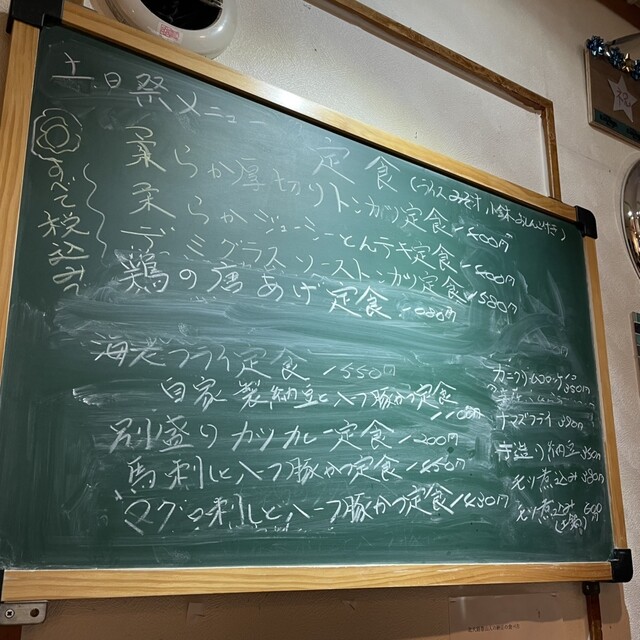 土、日祭メニュー
すべて税込みです
定食(ライス みそ汁 小鉢 おしんこ付き)
柔らか厚切りトンカツ定食 1500円
柔らかジューシーとんテキ定食 1400円
デミグラスソーストンカツ定食 1580円
鶏の唐あげ定食 1080円
海老フライ定食 1550円
自家製納豆と八つ豚かつ定食 1100円
別盛りカツカレー定食 1200円
馬刺しと八つ豚かつ定食 1450円
マグロ刺しと八つ豚かつ定食 1430円
カニクリームコロッケ 350円
ナマズフライ
手造り納豆 350円
モツ煮込み 380円
モツ煮込み